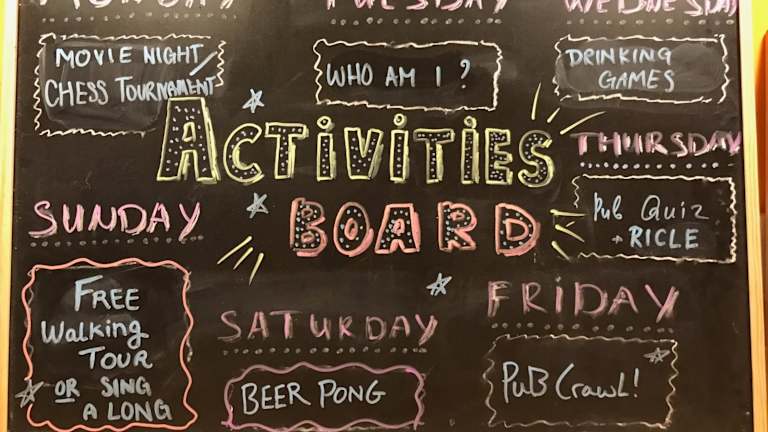 MONDAY
MOVIE NIGHT/
CHESS TOURNAMENT
TUESDAY
WHO AM I ?
WEDNESDAY
DRINKING
GAMES
ACTIVITIES
BOARD
THURSDAY
Pub QUIZ
+ RICLE
SUNDAY
FREE
Walking
TOUR
OR SING
A LONG
SATURDAY
BEER PONG
FRIDAY
PUB CrawL!